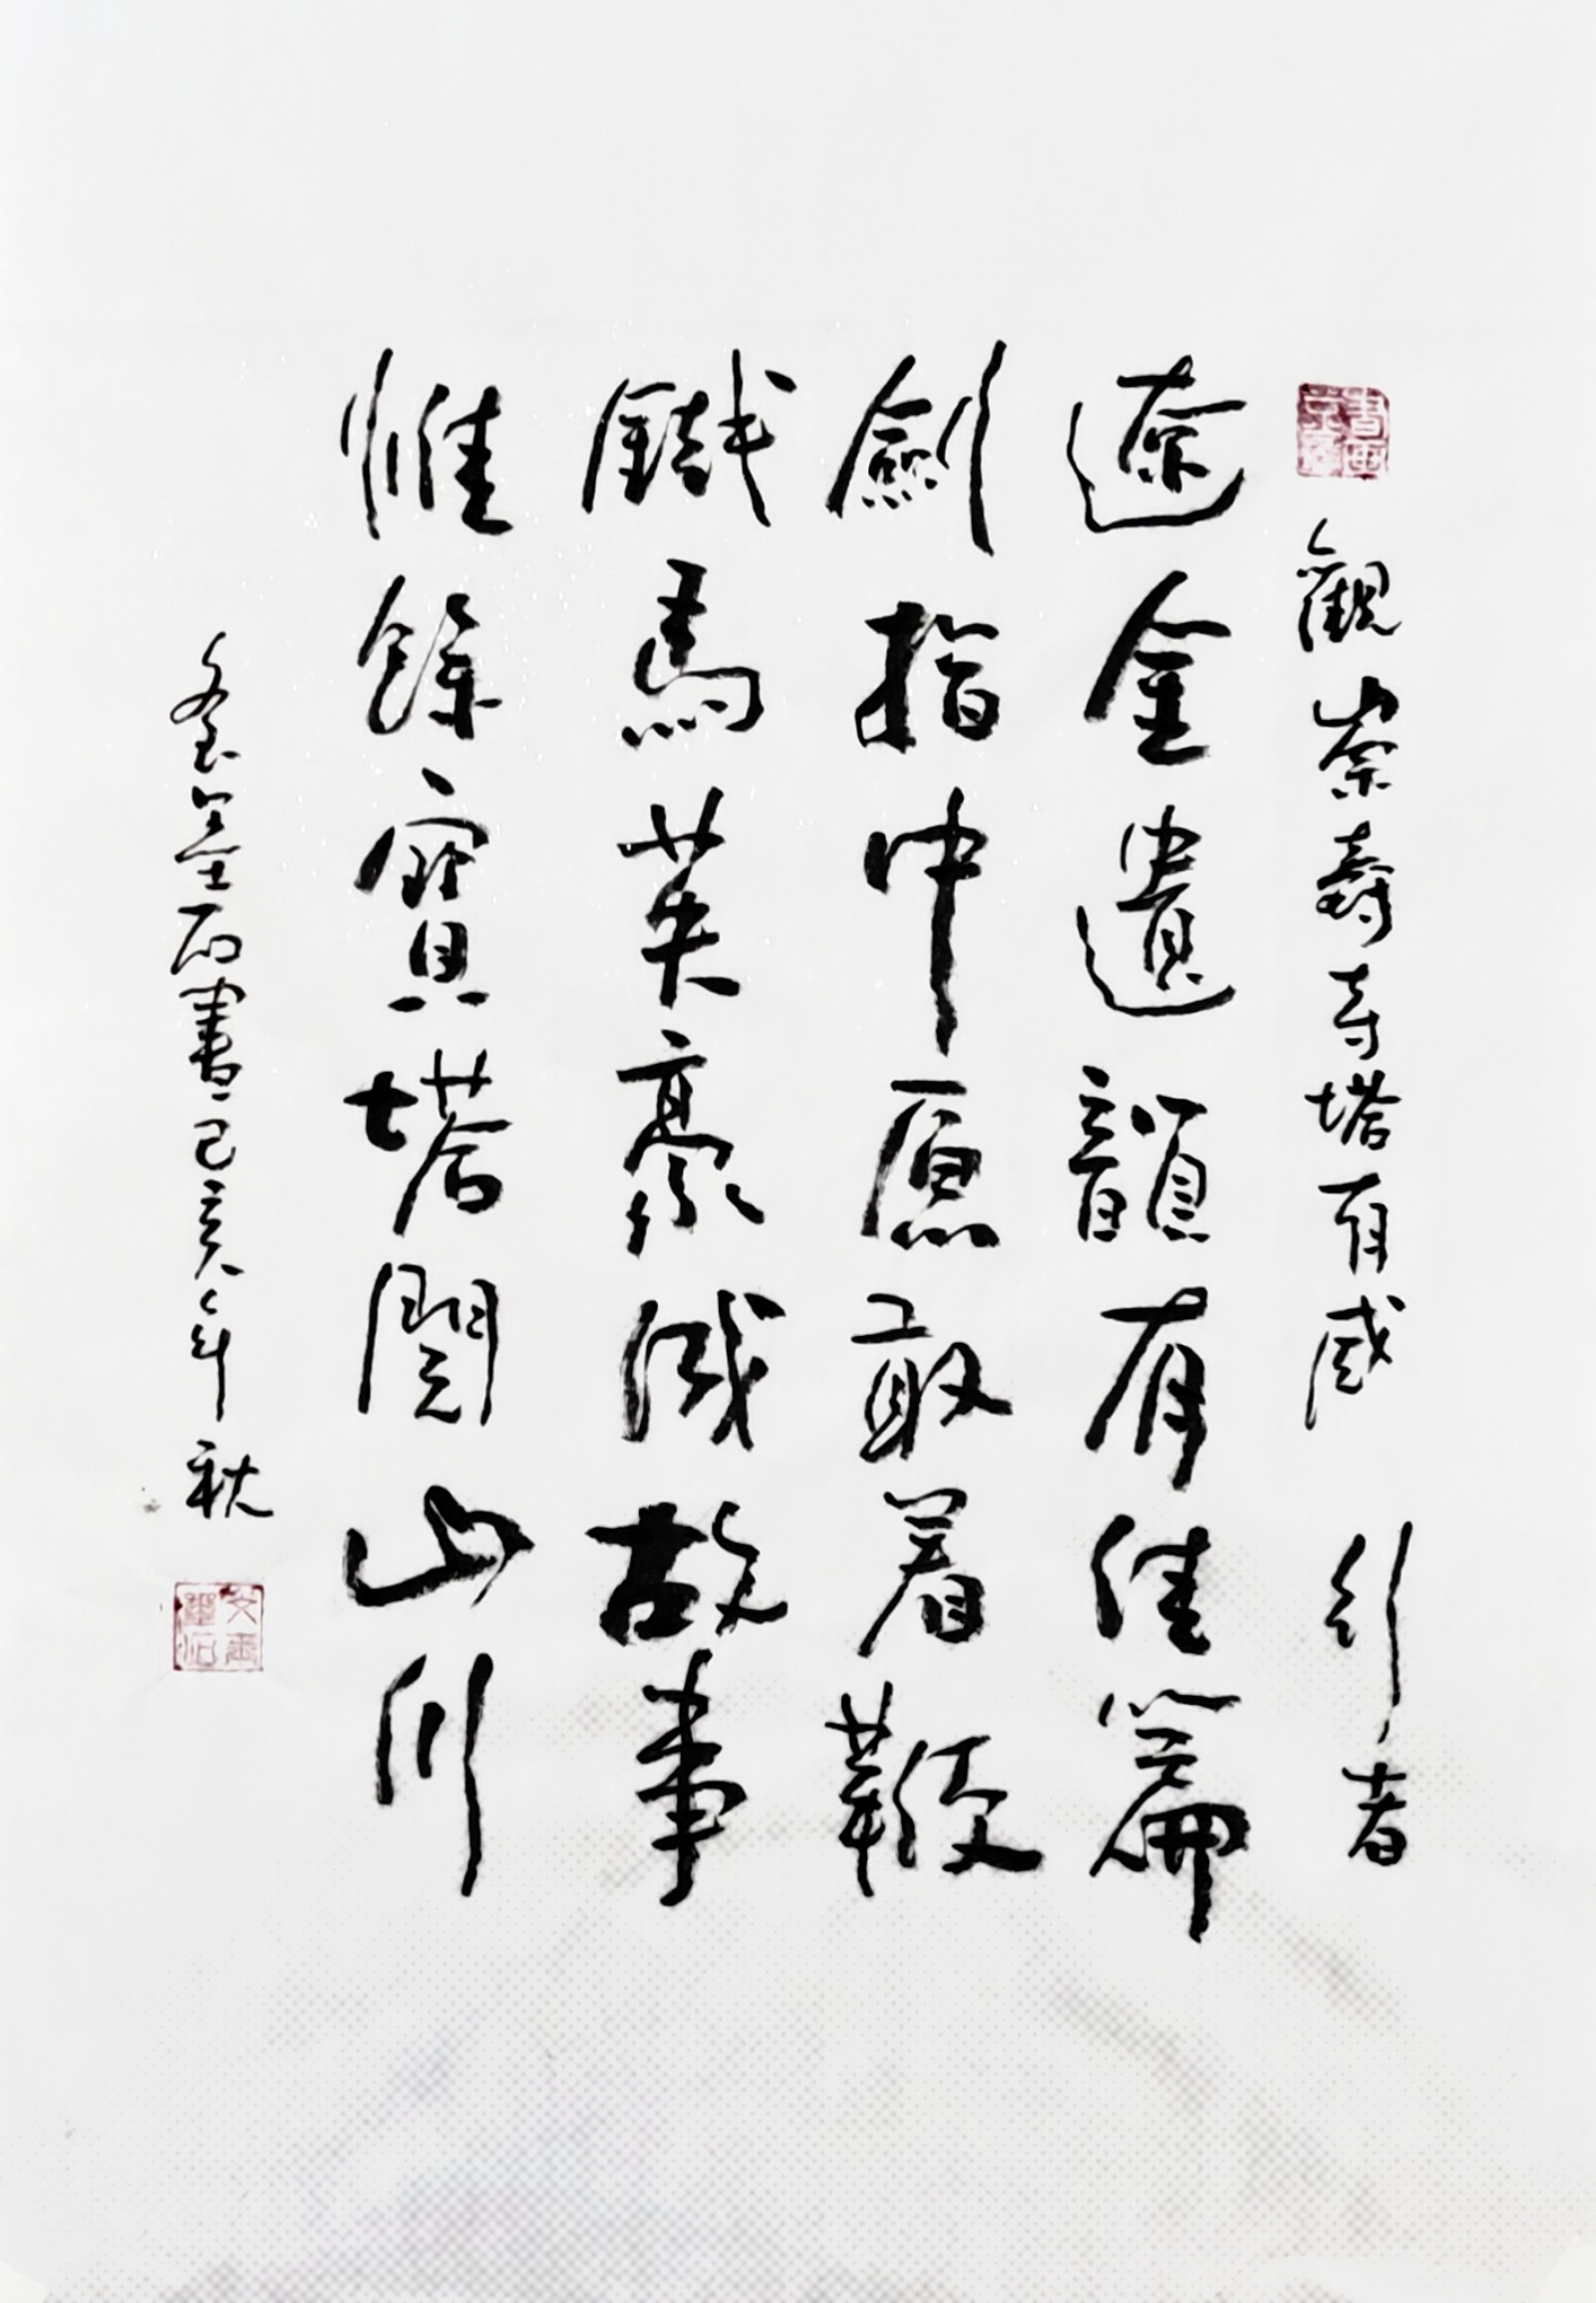 觀崇壽寺塔有感 行者
遼金遺韻有佳篇
劍指中原敢着鞭
鐵馬英豪成故事
惟餘寶塔閱山川
墨石書己亥年秋